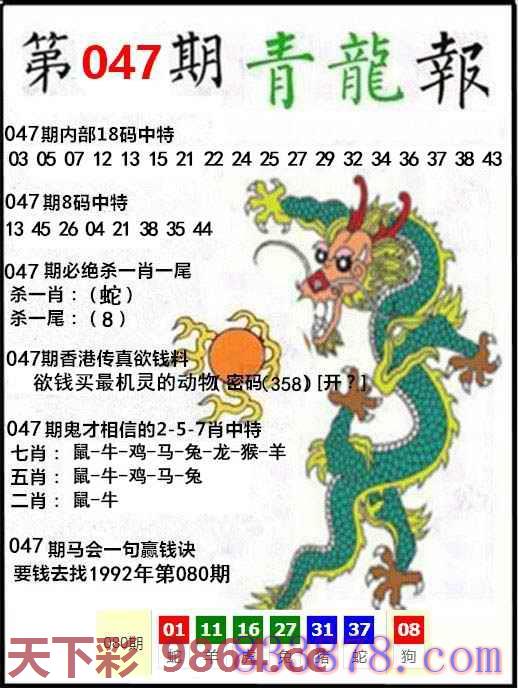 第047期青龍報
047期内部18码中特
03 05 07 12 13 15 21 22 24 25 27 29 32 34 36 37 38 43
047期8码中特
13 45 26 04 21 38 35 44
047期必绝杀一肖一尾
杀一肖：(蛇)
杀一尾：(8)
047期香港传真欲钱料
欲钱买最机灵的动物 密码(358) [开？]
047期鬼才相信的2-5-7肖中特
七肖：鼠-牛-鸡-马-兔-龙-猴-羊
五肖：鼠-牛-鸡-马-兔
二肖：鼠-牛
047期马会一句赢钱诀
要钱去找1992年第080期
080期 01 11 16 27 31 37 08
蛇 羊 虎 兔 猪 蛇 狗
天下彩 9864.cc